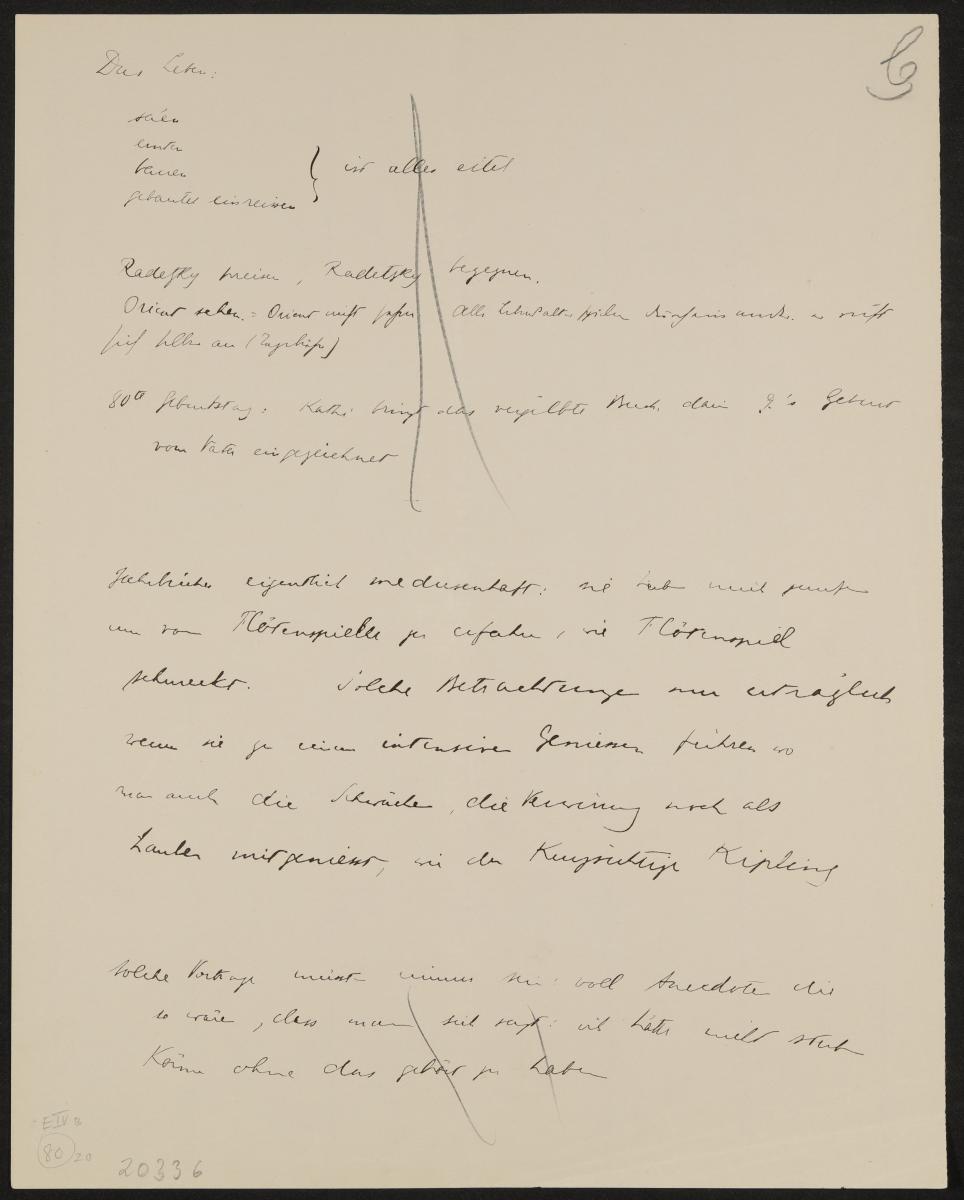 Das Leben:
säen
ernten
bauen
gebautes einreissen } ist alles eitel
Radetzky preisen, Radetzky begegnen.
Orient sehen. = Orient nicht sehen
sich selber an
80te Geburtstag: Kathi bringt das vergilbte Buch, darin G.'s Geburt
vom Vater eingezeichnet
eigentlich medusenhaft: sie
um vom Flötenspieler zu erfahren, wie Flötenspiel
schmeckt. Solche Betrachtungen nur erträglich
wenn sie zu einem intensiven Geniessen führen wo
man auch die Schwäche, die Verwirrung noch als
Zauber mitgeniesst, wie der Kurzsichtige Kipling
Solche Vorträge müssten immer sein: voll Anecdoten die
so wären, dass man sich sagt: ich hätte nicht sterben
können ohne das gehört zu haben
E IV B
80 20
20336